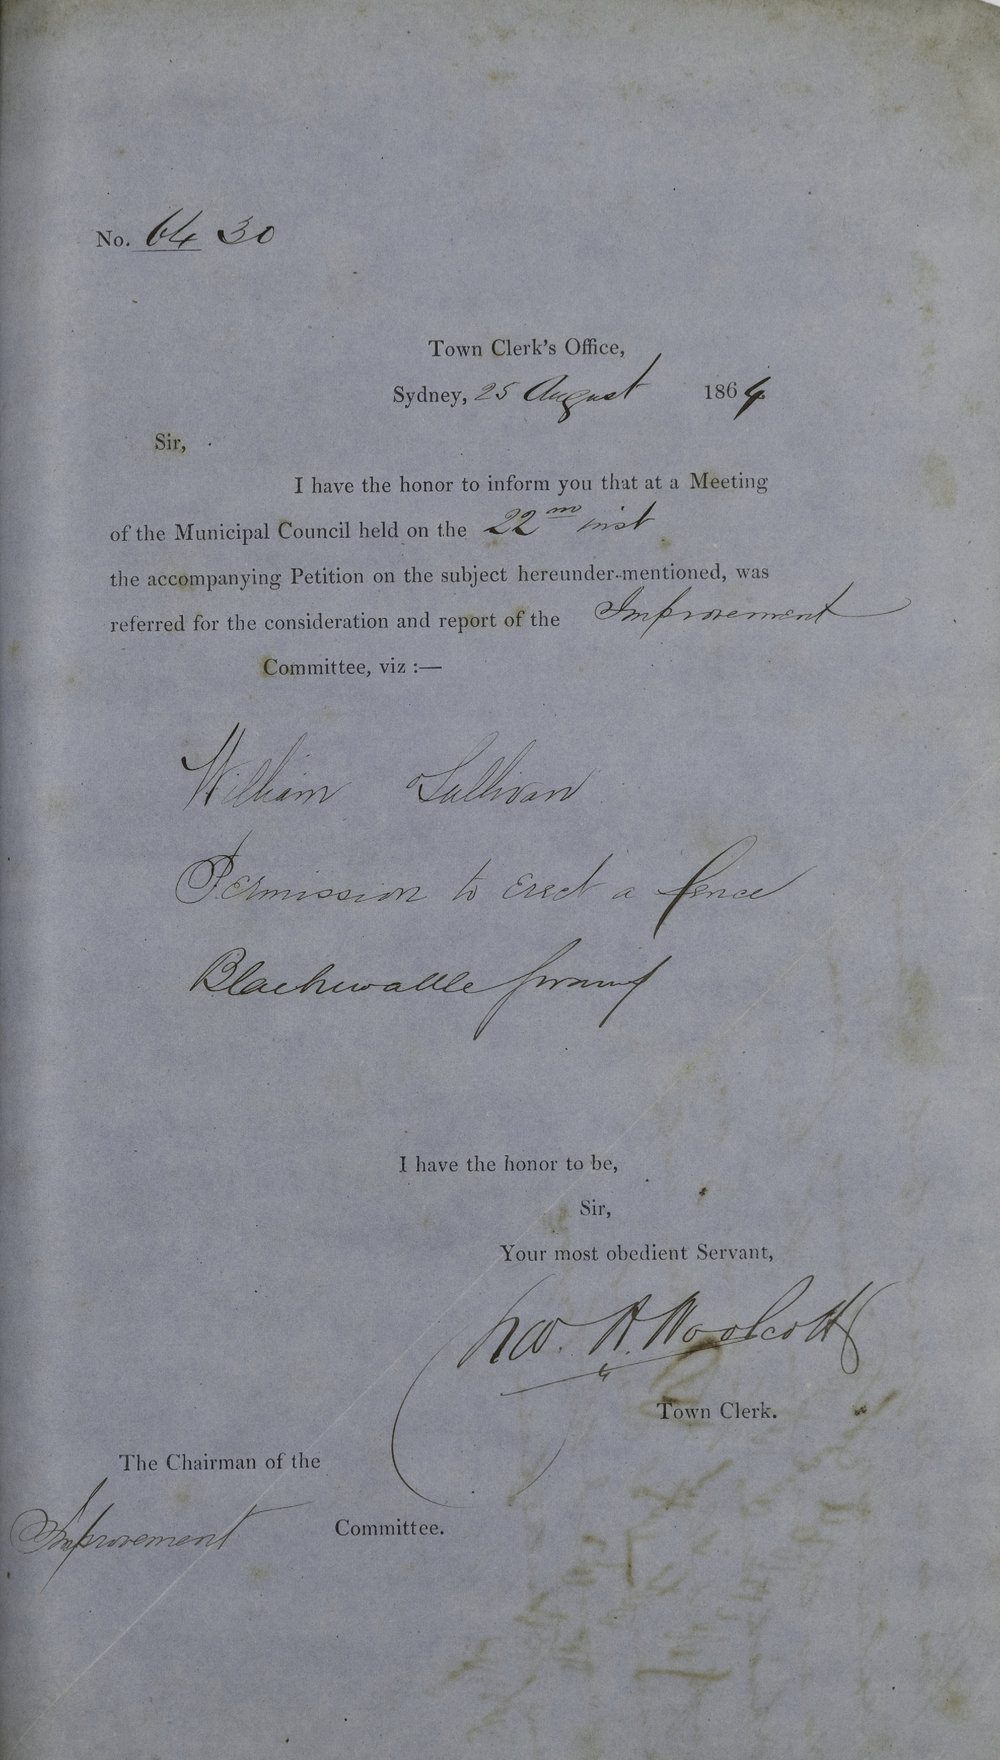 No. 64 30
Town Clerk's Office,
Sydney, 25 August 1864
Sir,
I have the honor to inform you that at a Meeting
of the Municipal Council held on the 22nd inst
the accompanying Petition on the subject hereunder-mentioned, was
referred for the consideration and report of the Improvement
Committee, viz :—
William Sullivan
Permission to erect a fence
Blackwattle Swamp
I have the honor to be,
Sir,
Your most obedient Servant,
Chas. H. Woolcott
Town Clerk.
The Chairman of the
Improvement Committee.